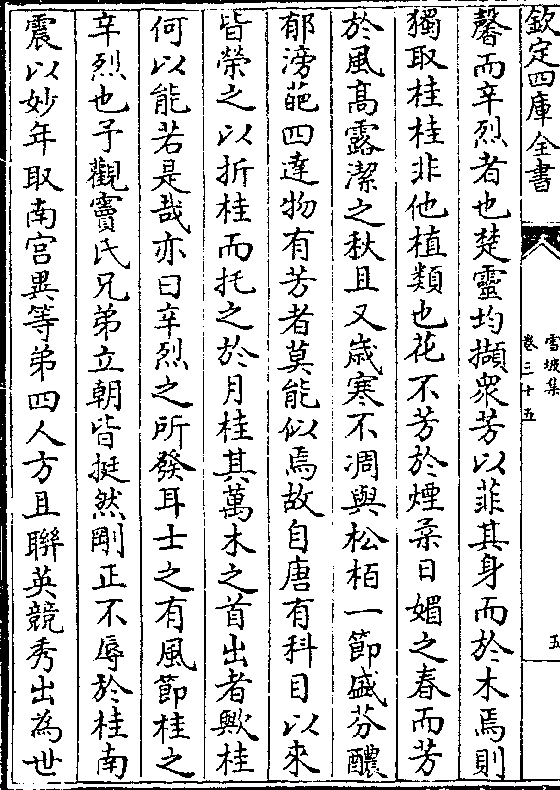 欽定四庫全書
雪坡集
卷三十五
五
馨而辛烈者也楚靈均擷衆芳以菲其身而於木焉則
獨取桂桂非他植類也花不芳於煙柔日媚之春而芳
於風髙露潔之秋且又歲寒不凋與松栢一節盛芬醲
郁滂葩四達物有芳者莫能似焉故自唐有科目以來
皆榮之以折桂而托之於月桂其萬木之首出者歟桂
何以能若是哉亦曰辛烈之所發耳士之有風節桂之
辛烈也予觀竇氏兄弟立朝皆挺然剛正不辱於桂南
震以妙年取南宫異等弟四人方且聯英競秀出為世